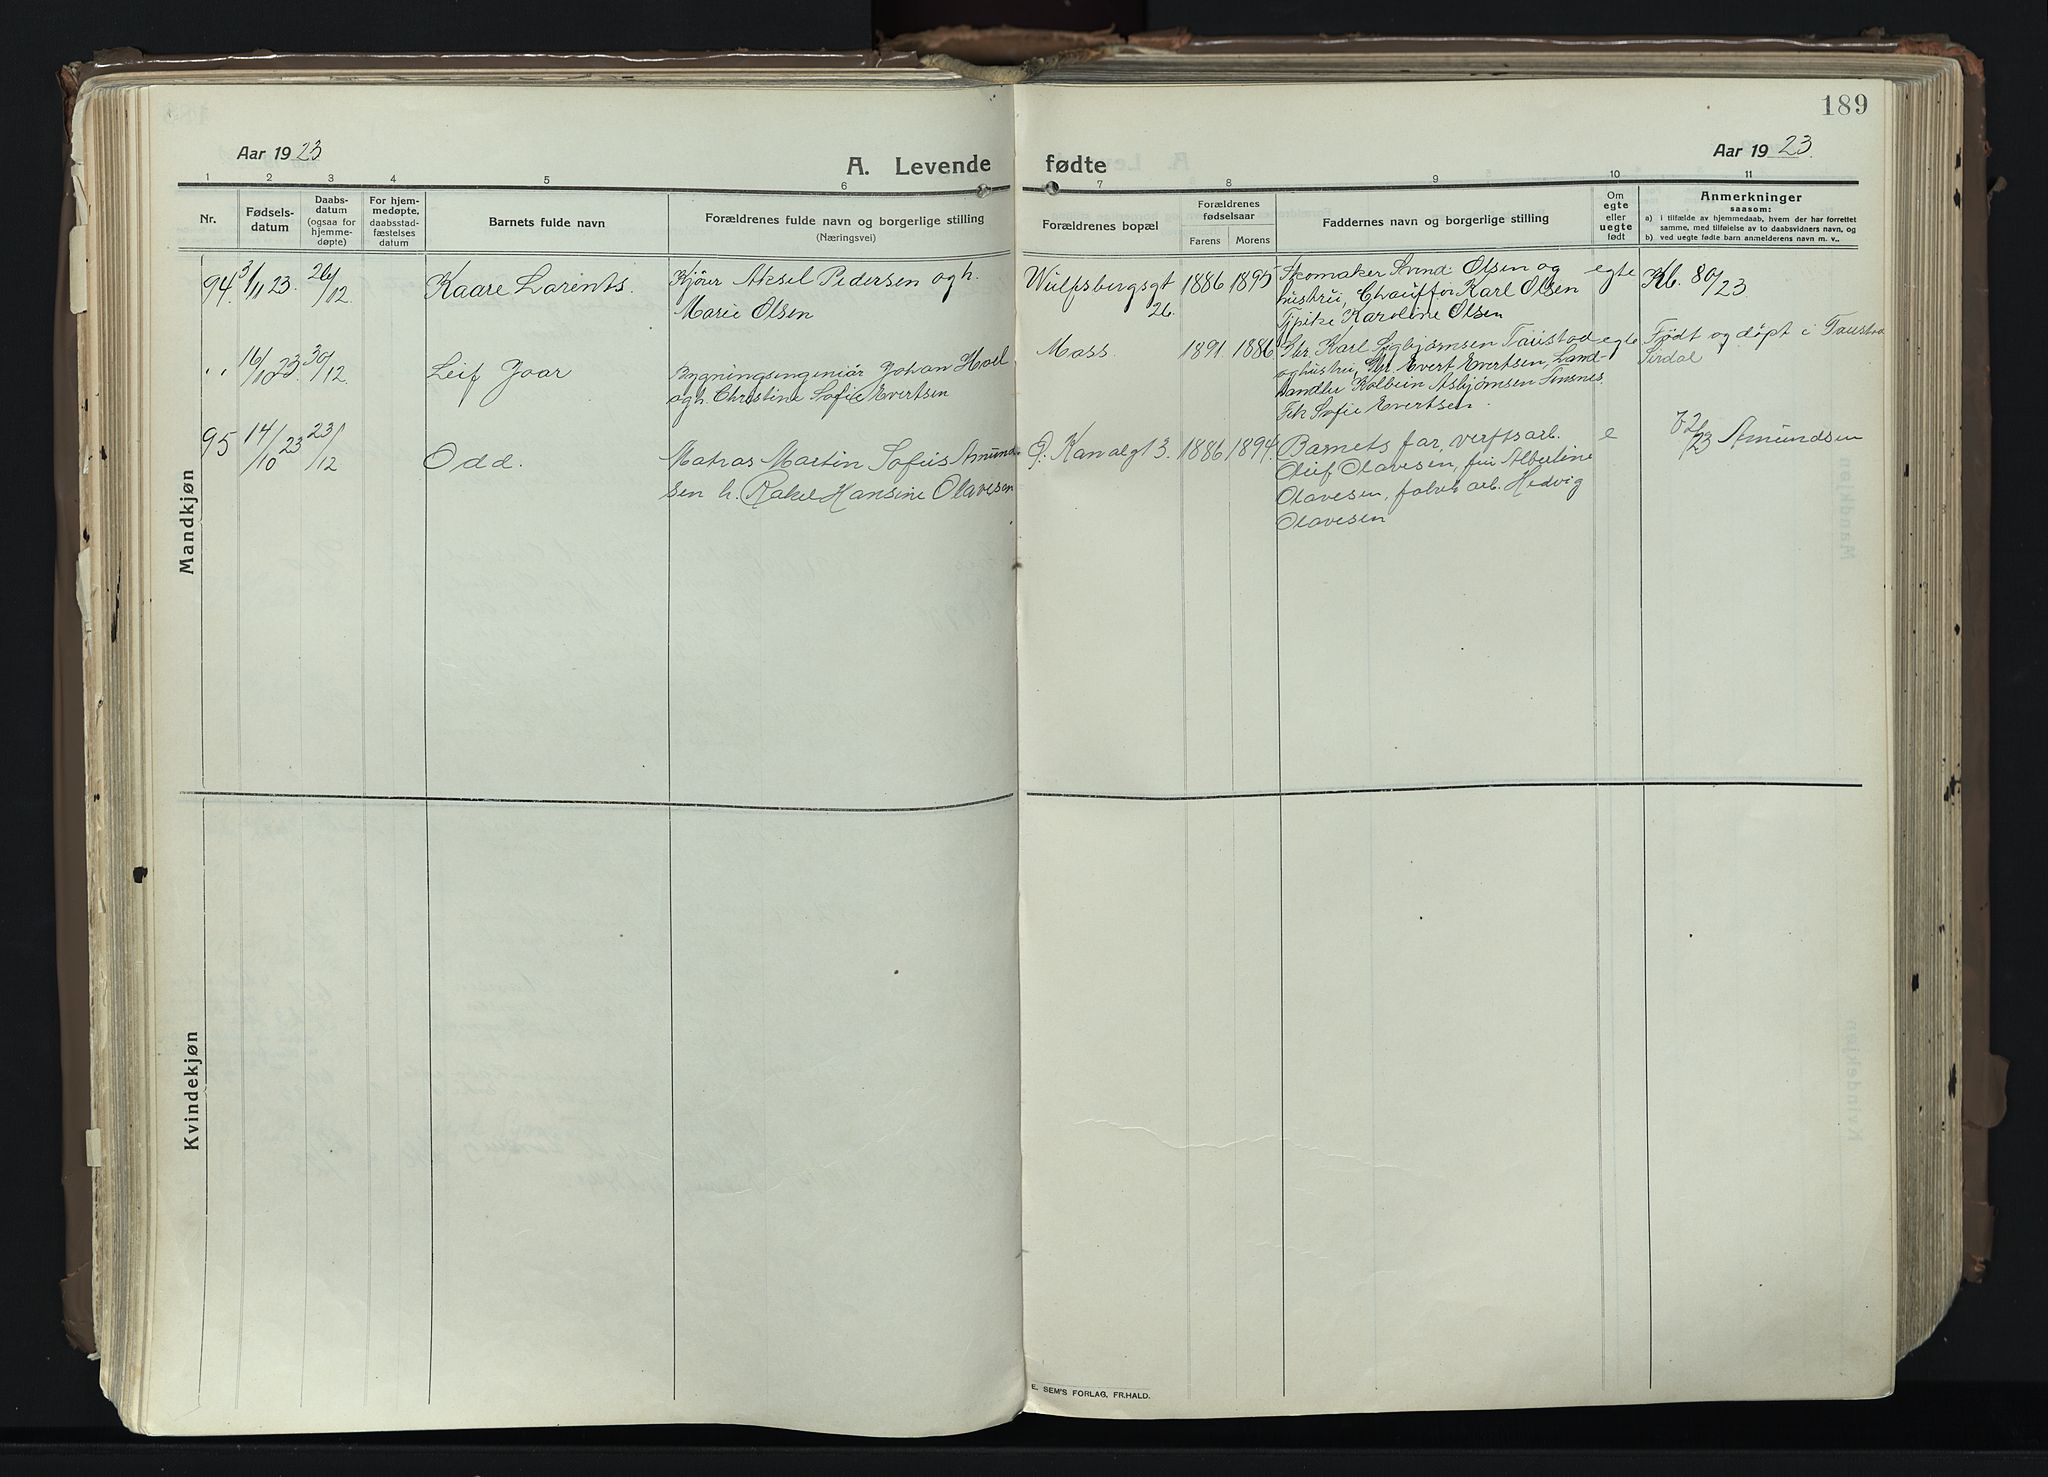 189
Aar 1923
A. Levende
fødte
Aar 1923.
1 2 3 4 5 6 7 8 9 10 11
Nr.
Fødsels-
datum
Daabs-
datum
(ogsaa for
hjemme-
døpte)
For hjem-
medøpte,
daabsstad-
fæstelses
datum
Barnets fulde navn
Forældrenes fulde navn og borgerlige stilling
(Næringsvei)
Forældrenes bopæl
Forældrenes
fødselsaar
Farens Morens
Faddernes navn og borgerlige stilling
Om
egte
eller
uegte
født
Anmerkninger
saasom:
a) i tilfælde av hjemmedaab, hvem der har forrettet
samme, med tilføielse av to daabsvidners navn, og
b) ved uegte fødte barn anmelderens navn m. v..
Mandkjøn
94. 3/11 23. 26/12 Kaare Larents. Kjører Aksel Pedersen og h.
Marie Olsen
Wulfsbergsgt
26.
1886 1895
Skomaker Olsen og
hustru, Chauffør Karl Olsen
Karoline Olsen
egte
Kb. 80/23.
,, 16/10 23. 30/12 Leif Joar Bygningsingeniør Johan Hoel
og h. Christine Sofie Evertsen
Moss. 1891 1886
Gbr. Karl Taustad
og hustru, Gbr Evert Evertsen, Land-
handler Kolbein Asbjørnsen
Frk Sofie Evertsen.
egte
Født og døpt i
Sirdal
95 14/10 23 23/12 Odd. Matros Martin Sofus Amund-
sen h. Rakel Hansine Olavesen
Kanalgt 3. 1886 1894.
Barnets far, verftsarb.
Oluf Olavesen, fru Albertine
Olavesen, fabrik arb. Hedvig
Olavesen
e
23 Amundsen
Kvindekjøn
E. SEM'S FORLAG, FR.HALD.